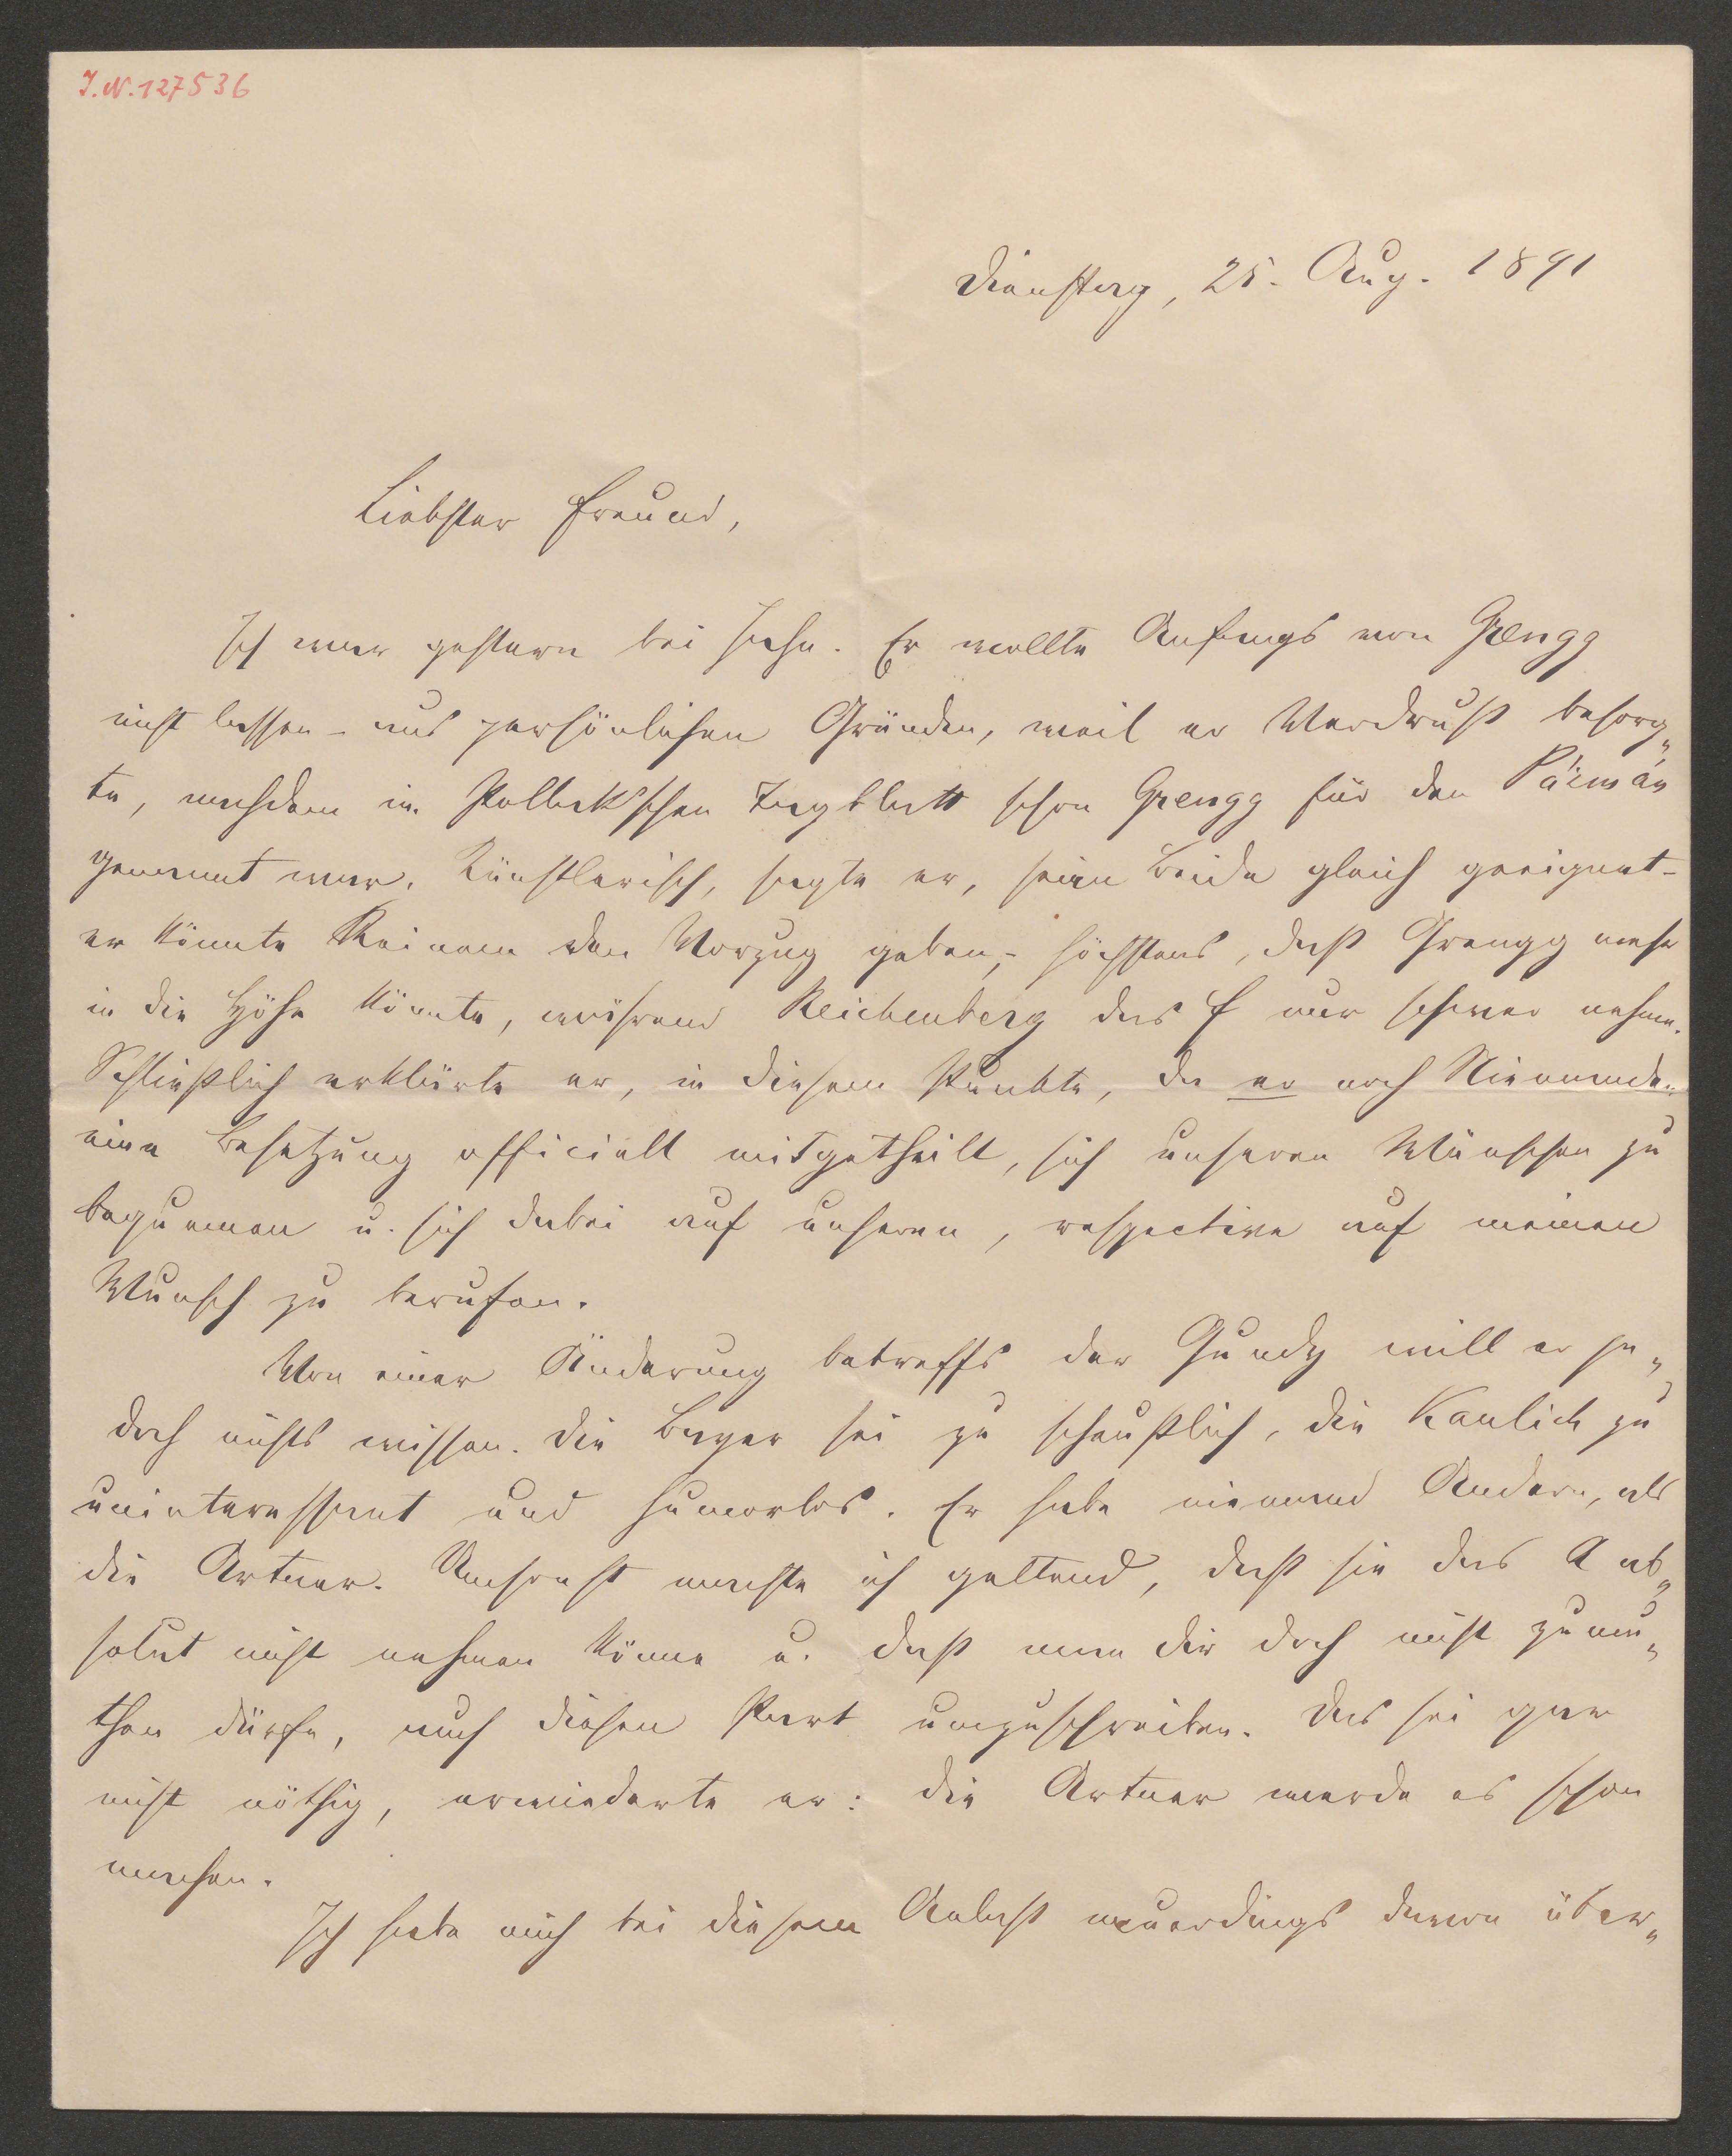 I.N.127536
Dienstag, 25. Aug. 1891
Liebster Freund,
Ich war gestern bei Jahn. Er wollte Anfangs von Grengg
nicht lassen – aus persönlichen Gründen, weil er Verdruß besorg„
te, nachdem im Pollak'schen Tagblatt schon Grengg für den Pásmán
genannt war. Künstlerisch, sagte er, seien Beide gleich geeignet –
er könnte Keinem den Vorzug geben, – höchstens, daß Grengg mehr
in die Höhe könnte, während Reichenberg das f nur schwer nehme.
Schließlich erklärte er, in diesem Punkte, da er noch Niemanden
eine Besetzung officiell mitgetheilt, sich unseren Wünschen zu
bequemen u. sich dabei auf unseren, respective auf meinen
Wunsch zu berufen.
Von einer Änderung betreffs der Gundy will er je„
doch nichts wissen. Die Bayer sei zu scheußlich, die Kaulich zu
uninteressant und humorlos. Er habe niemand Andern, als
die Artner. Umsonst machte ich geltend, daß sie das A ab„
solut nicht nehmen könne u. daß man dir doch nicht zumu„
then dürfe, auch diesen Part umzuschreiben. Das sei gar
nicht nöthig, erwiederte er: die Artner werde es schon
machen.
Ich habe mich bei diesem Anlaß neuerdings davon über„